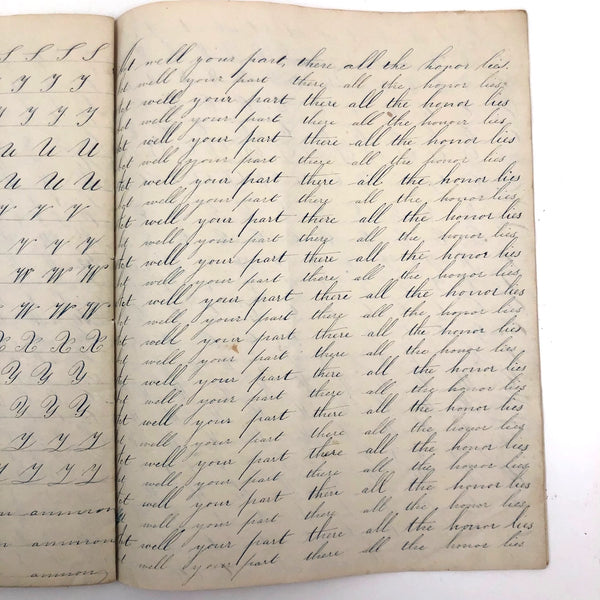 S S S S S
U U U
U U U
W W W
W W W
X X X X
Y Y Y
Y Y Y
Act well your part, there all the honor lies.
ct well your part there all the honor lies
ct well your part there all the honor lies
ct well your part there all the honor lies
ct well your part there all the honor lies
ct well your part there all the honor lies
ct well your part there all the honor lies
ct well your part there all the honor lies
ct well your part there all the honor lies
ct well your part there all the honor lies
ct well your part there all the honor lies
ct well your part there all the honor lies
ct well your part there all the honor lies
ct well your part there all the honor lies
ct well your part there all the honor lies
ct well your part there all the honor lies
ct well your part there all the honor lies
ct well your part there all the honor lies
ct well your part there all the honor lies
ct well your part there all the honor lies
ct well your part there all the honor lies
ct well your part there all the honor lies
ct well your part there all the honor lies
ct well your part there all the honor lies
ct well your part there all the honor lies
ct well your part there all the honor lies